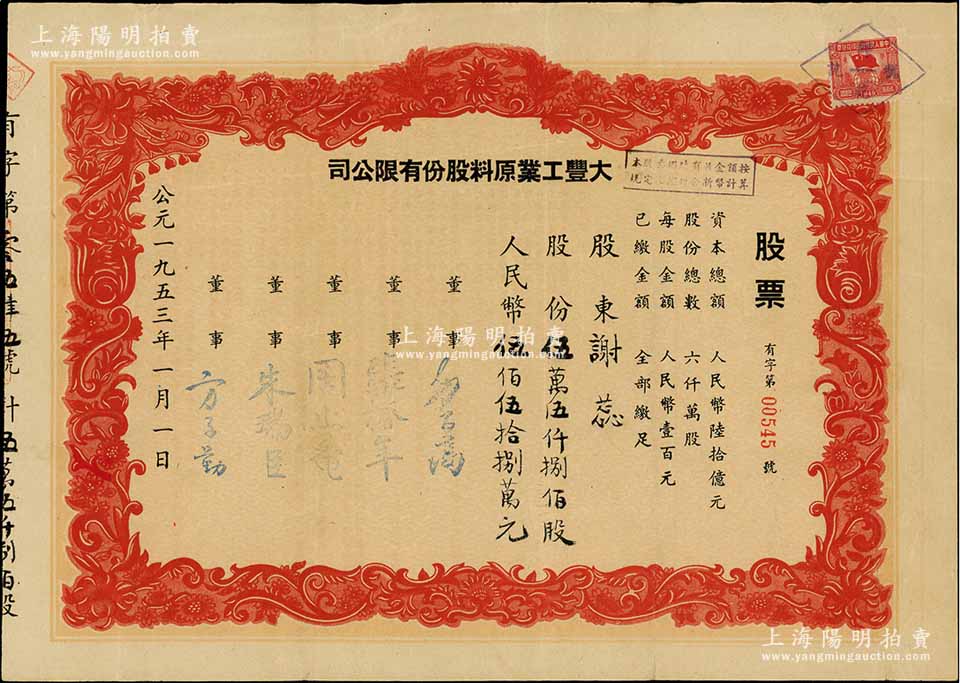 上海陽明拍卖
www.yangmingauction.com
上海陽明拍卖
www.yangmingauction.com
大豐工業原料股份有限公司
股票
有字第00545號
資本總額 人民幣陸拾億元
股份總數 六仟萬股
每股金額 人民幣壹百元
已繳金額 全部繳足
股東謝蕊
股份伍萬伍仟捌佰股
人民幣伍佰伍拾捌萬元
董事
董事
董事
董事 朱瑞臣
董事 方子勤
公元一九五三年一月一日
字第零伍肆五號 計五萬五仟捌百股
上海陽明拍卖
www.yangmingauction.com
上海陽明拍卖
www.yangmingauction.com